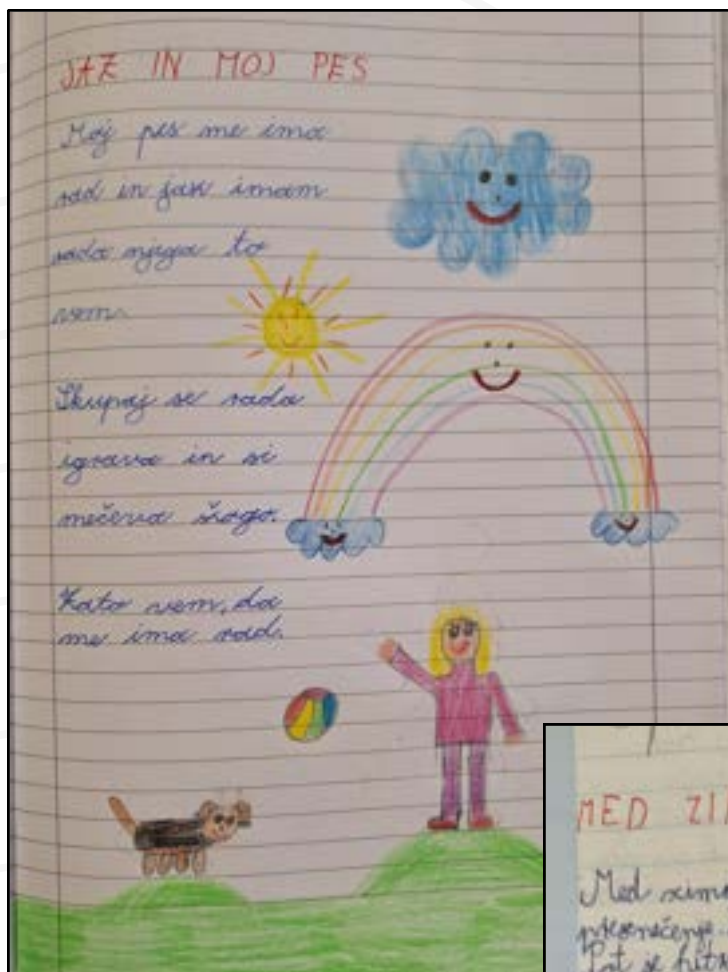 JAZ IN MOJ PES
Moj pes me ima
rad in jaz imam
rada njega to
vem.
Skupaj se rada
igrava in si
mečeva žogo.
Zato vem, da
me ima rad.
MED
Med
presenečenje
Pot je hit